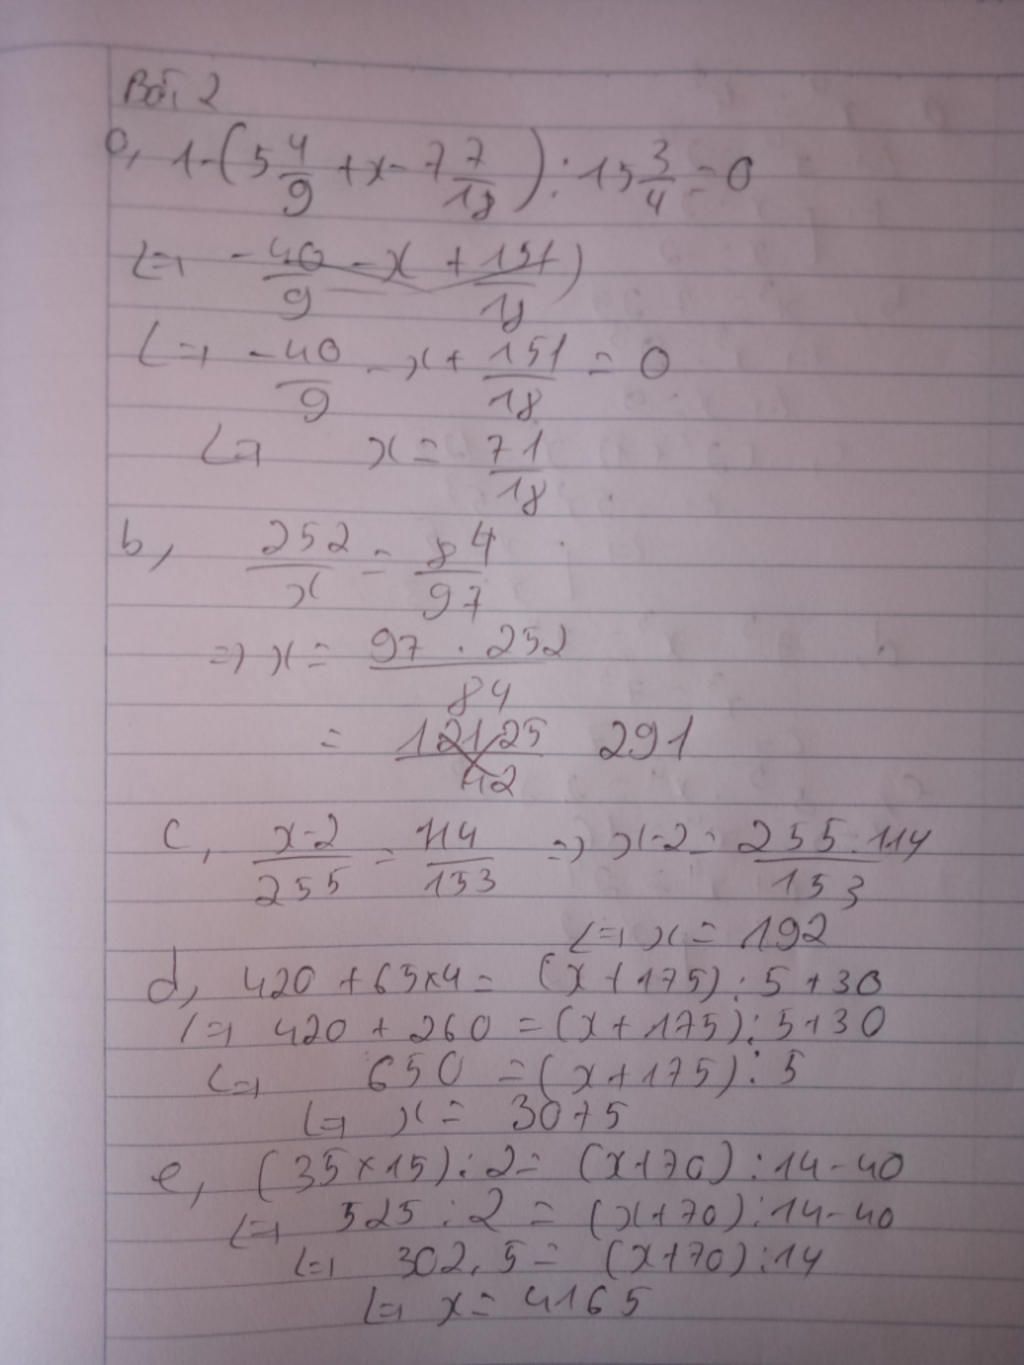 Bài 2
a, 1-(5 4/9 + x - 7 7/18) : 15 3/4 = 0
<=> - 40/9 - x + 151/18)
<=> - 40/9 - x + 151/18 = 0
<=> x = 71/18
b, 252/x = 84/97
=> x = 97 . 252/84
= 12125/42 291
c, x-2/255 = 114/153 => x-2 = 255.114/153
<=> x = 192
d, 420 + 65x4 = (x+175) : 5 + 30
<=> 420 + 260 = (x+175) : 5+30
<=> 650 = (x+175) : 5
<=> x = 3075
e, (35x15) : 2 = (x+70) : 14 - 40
<=> 525 : 2 = (x+70) : 14-40
<=> 302,5 = (x+70) : 14
<=> x = 4165